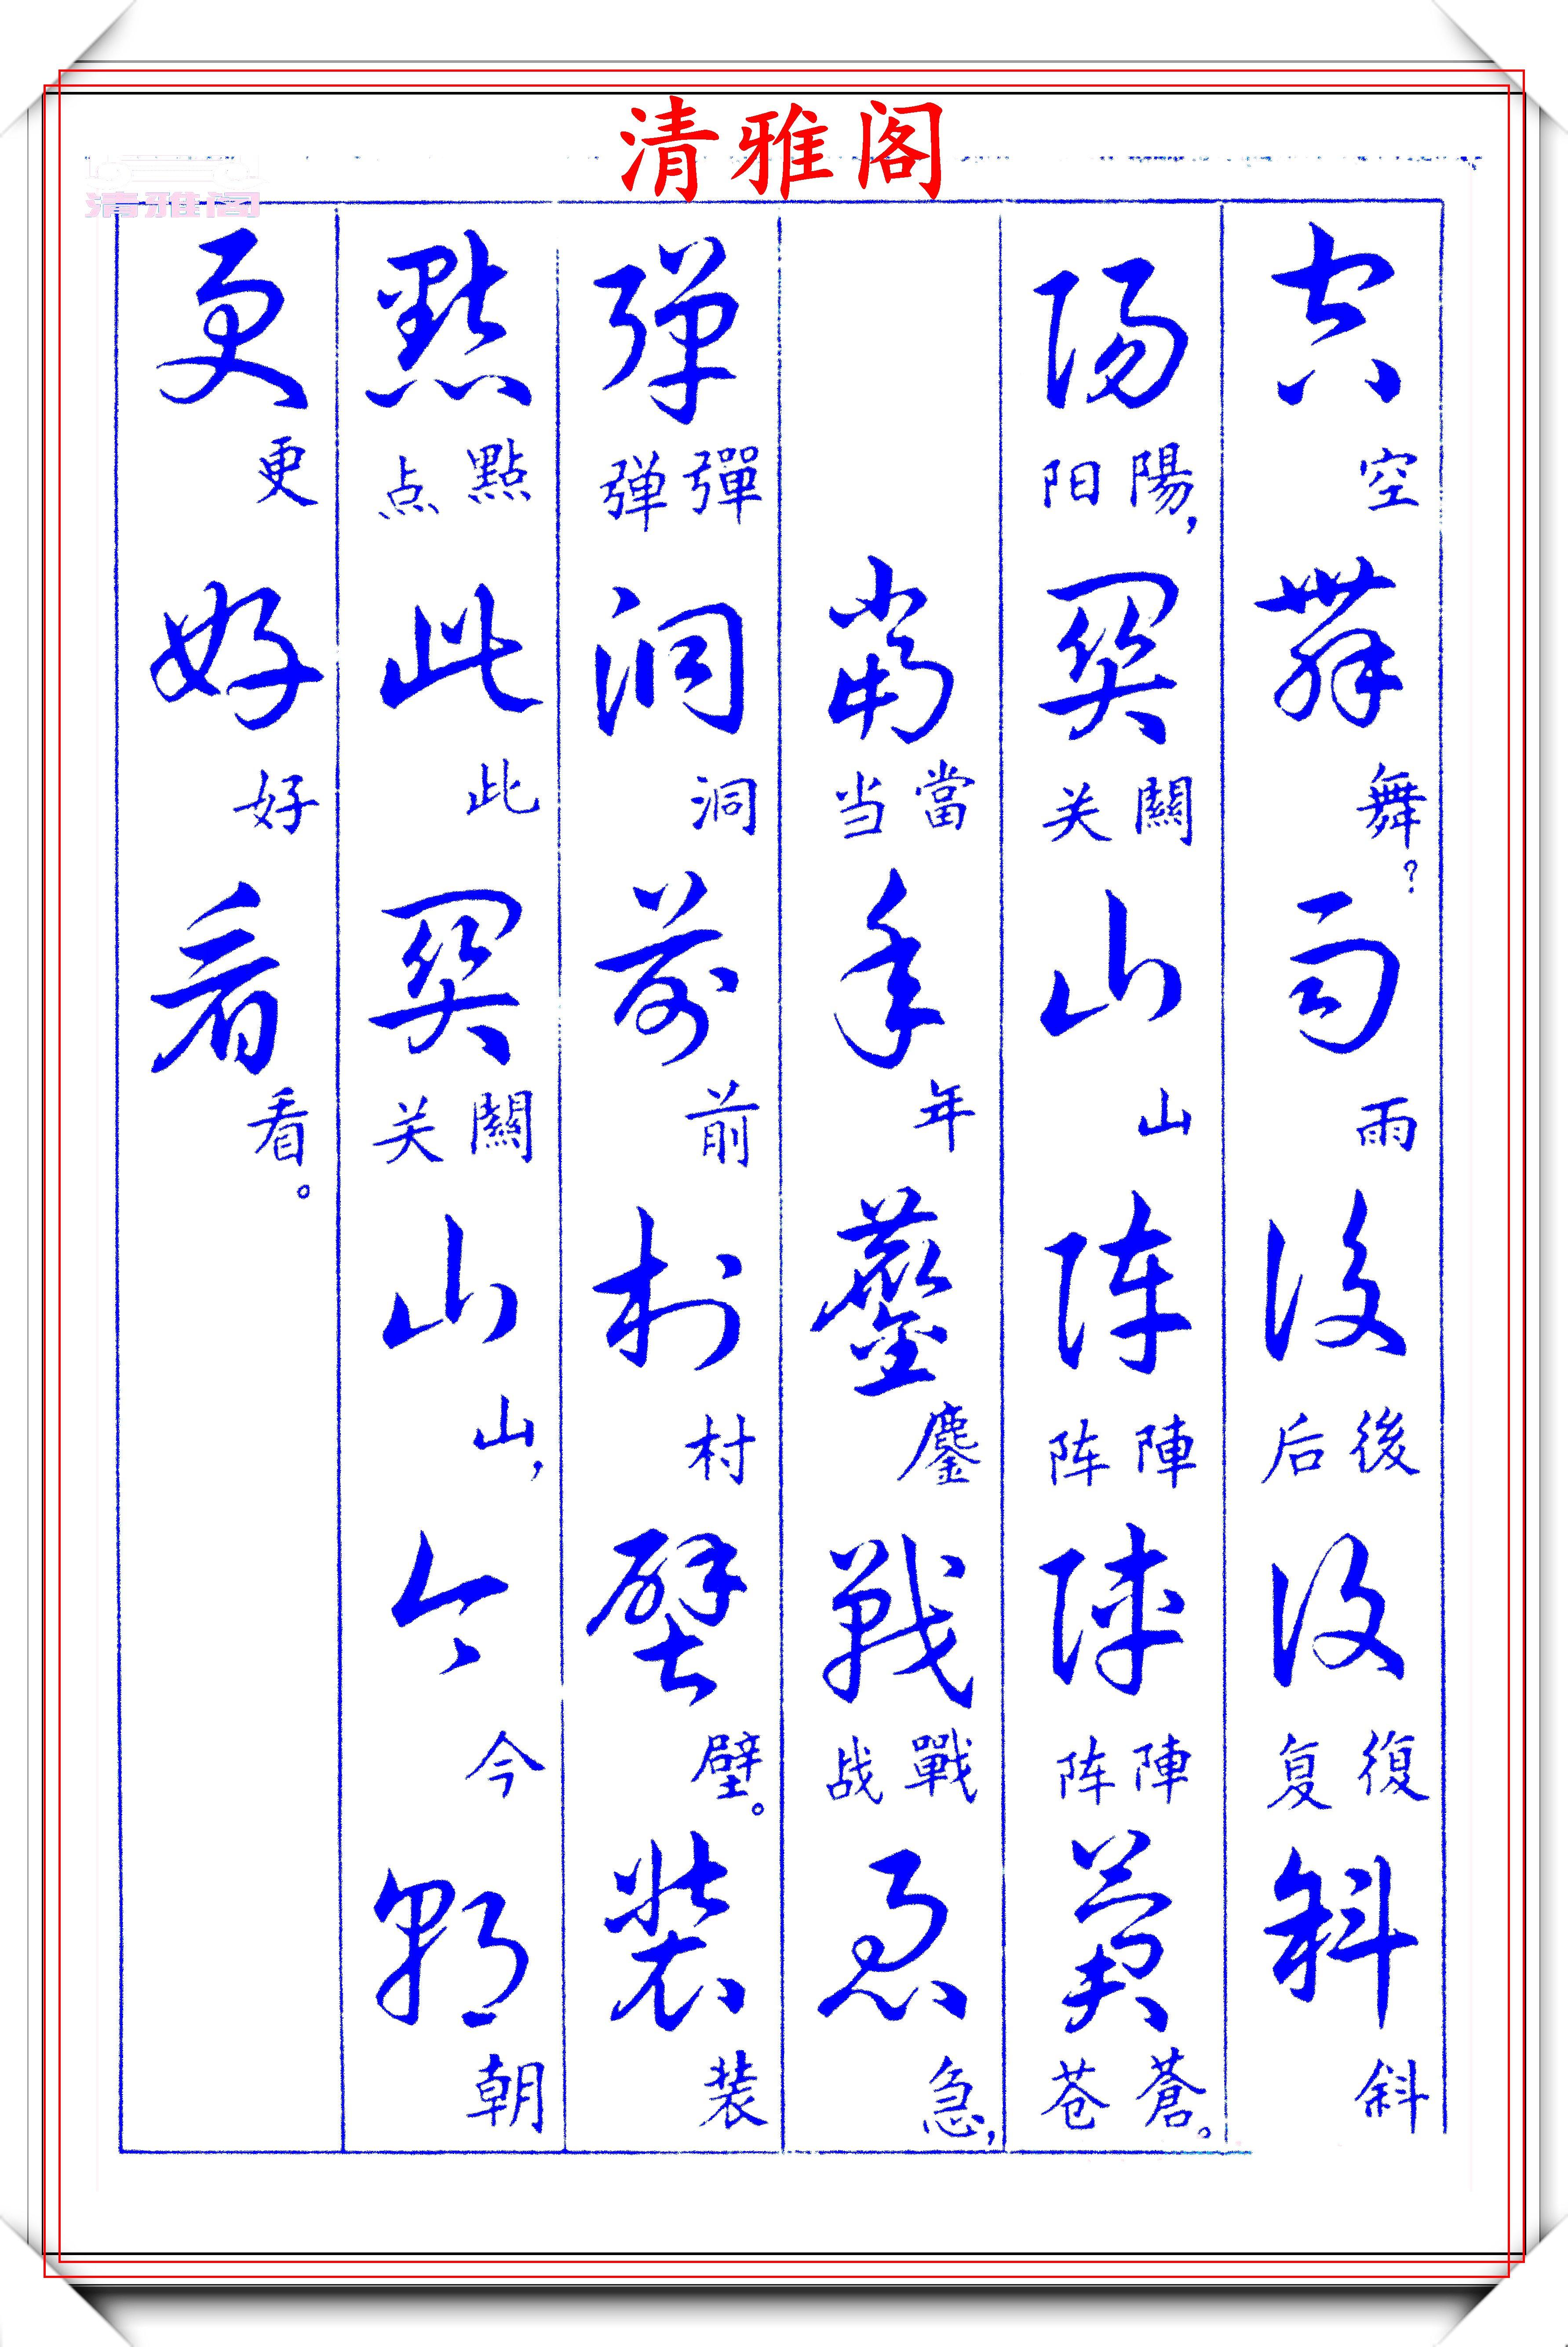 清雅阁
清雅阁
空 空 舞 舞？ 雨 雨 後 後 后 復 復 复 斜 斜
陽 陽， 阳 關 關 关 山 山 阵 陣 阵 陣 陣 阵 蒼 蒼。 苍
當 當 当 年 年 鏖 鏖 戰 戰 战 急 急，
彈 彈 弹 洞 洞 前 前 村 村 壁 壁。 装 装
點 點 点 此 此 關 關 关 山 山， 今 今 朝 朝
更 更 好 好 看 看。